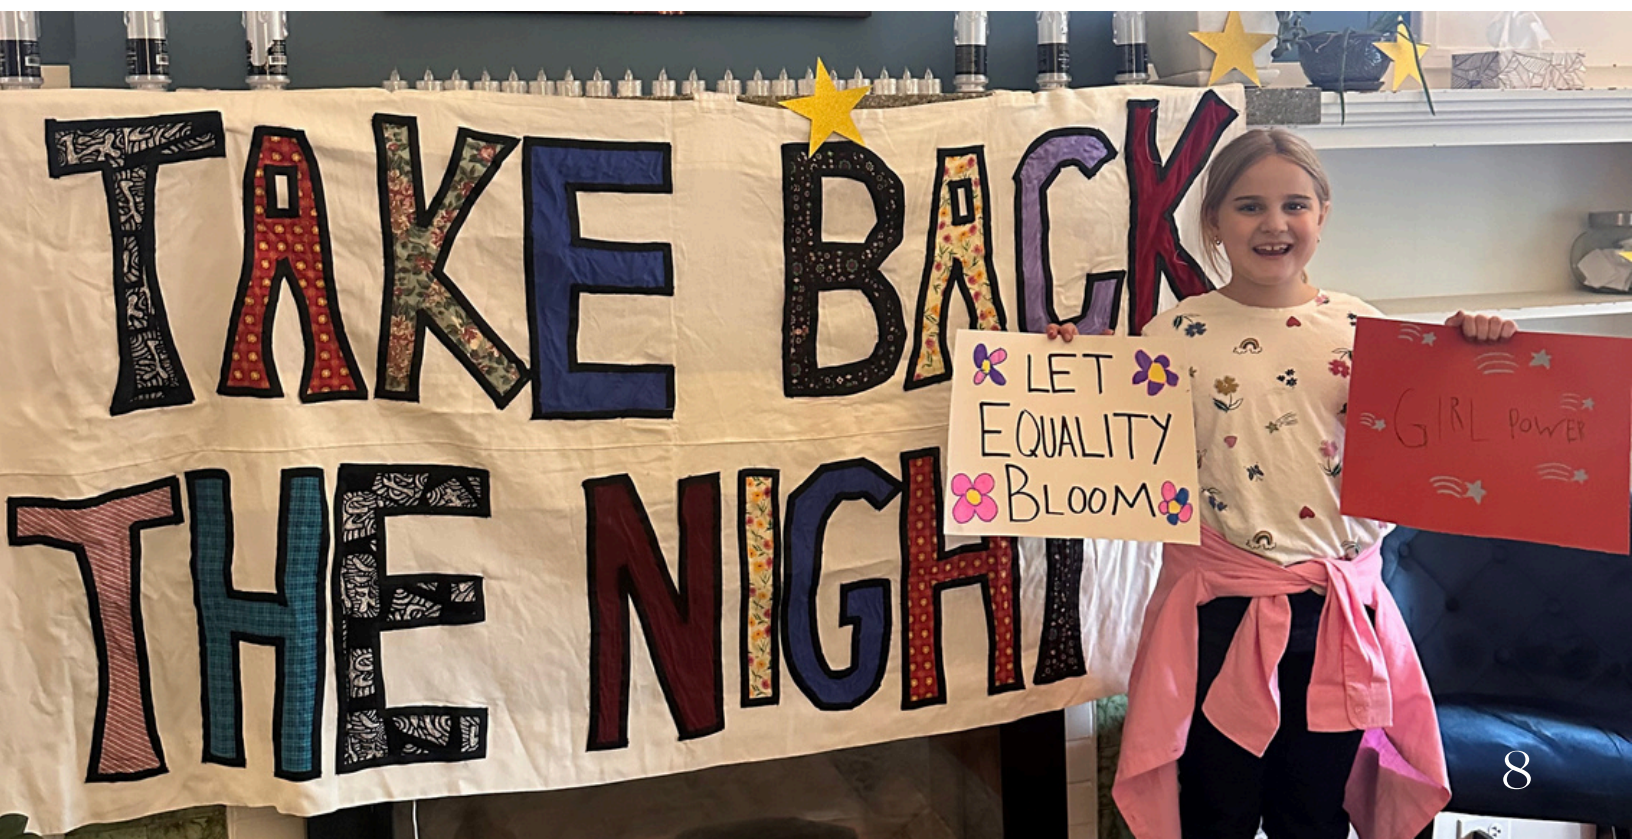 TAKE BACK
THE NIGHT
LET
EQUALITY
BLOOM
GIRL POWER
8